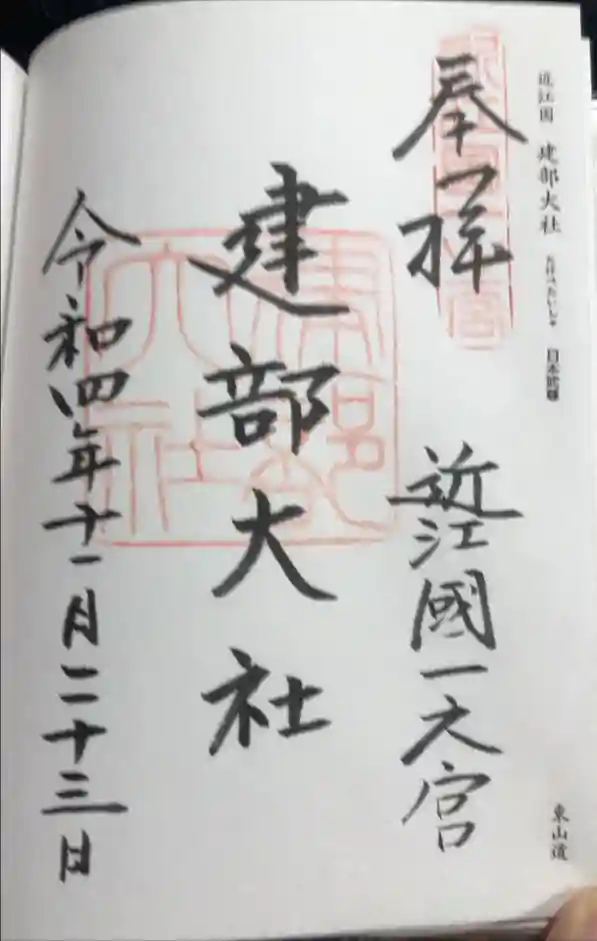 近江国 建部大社 たけべたいしゃ 日本武尊
東山道
奉拝 近江國一之宮
建部大社
令和四年十一月二十三日
建部大社